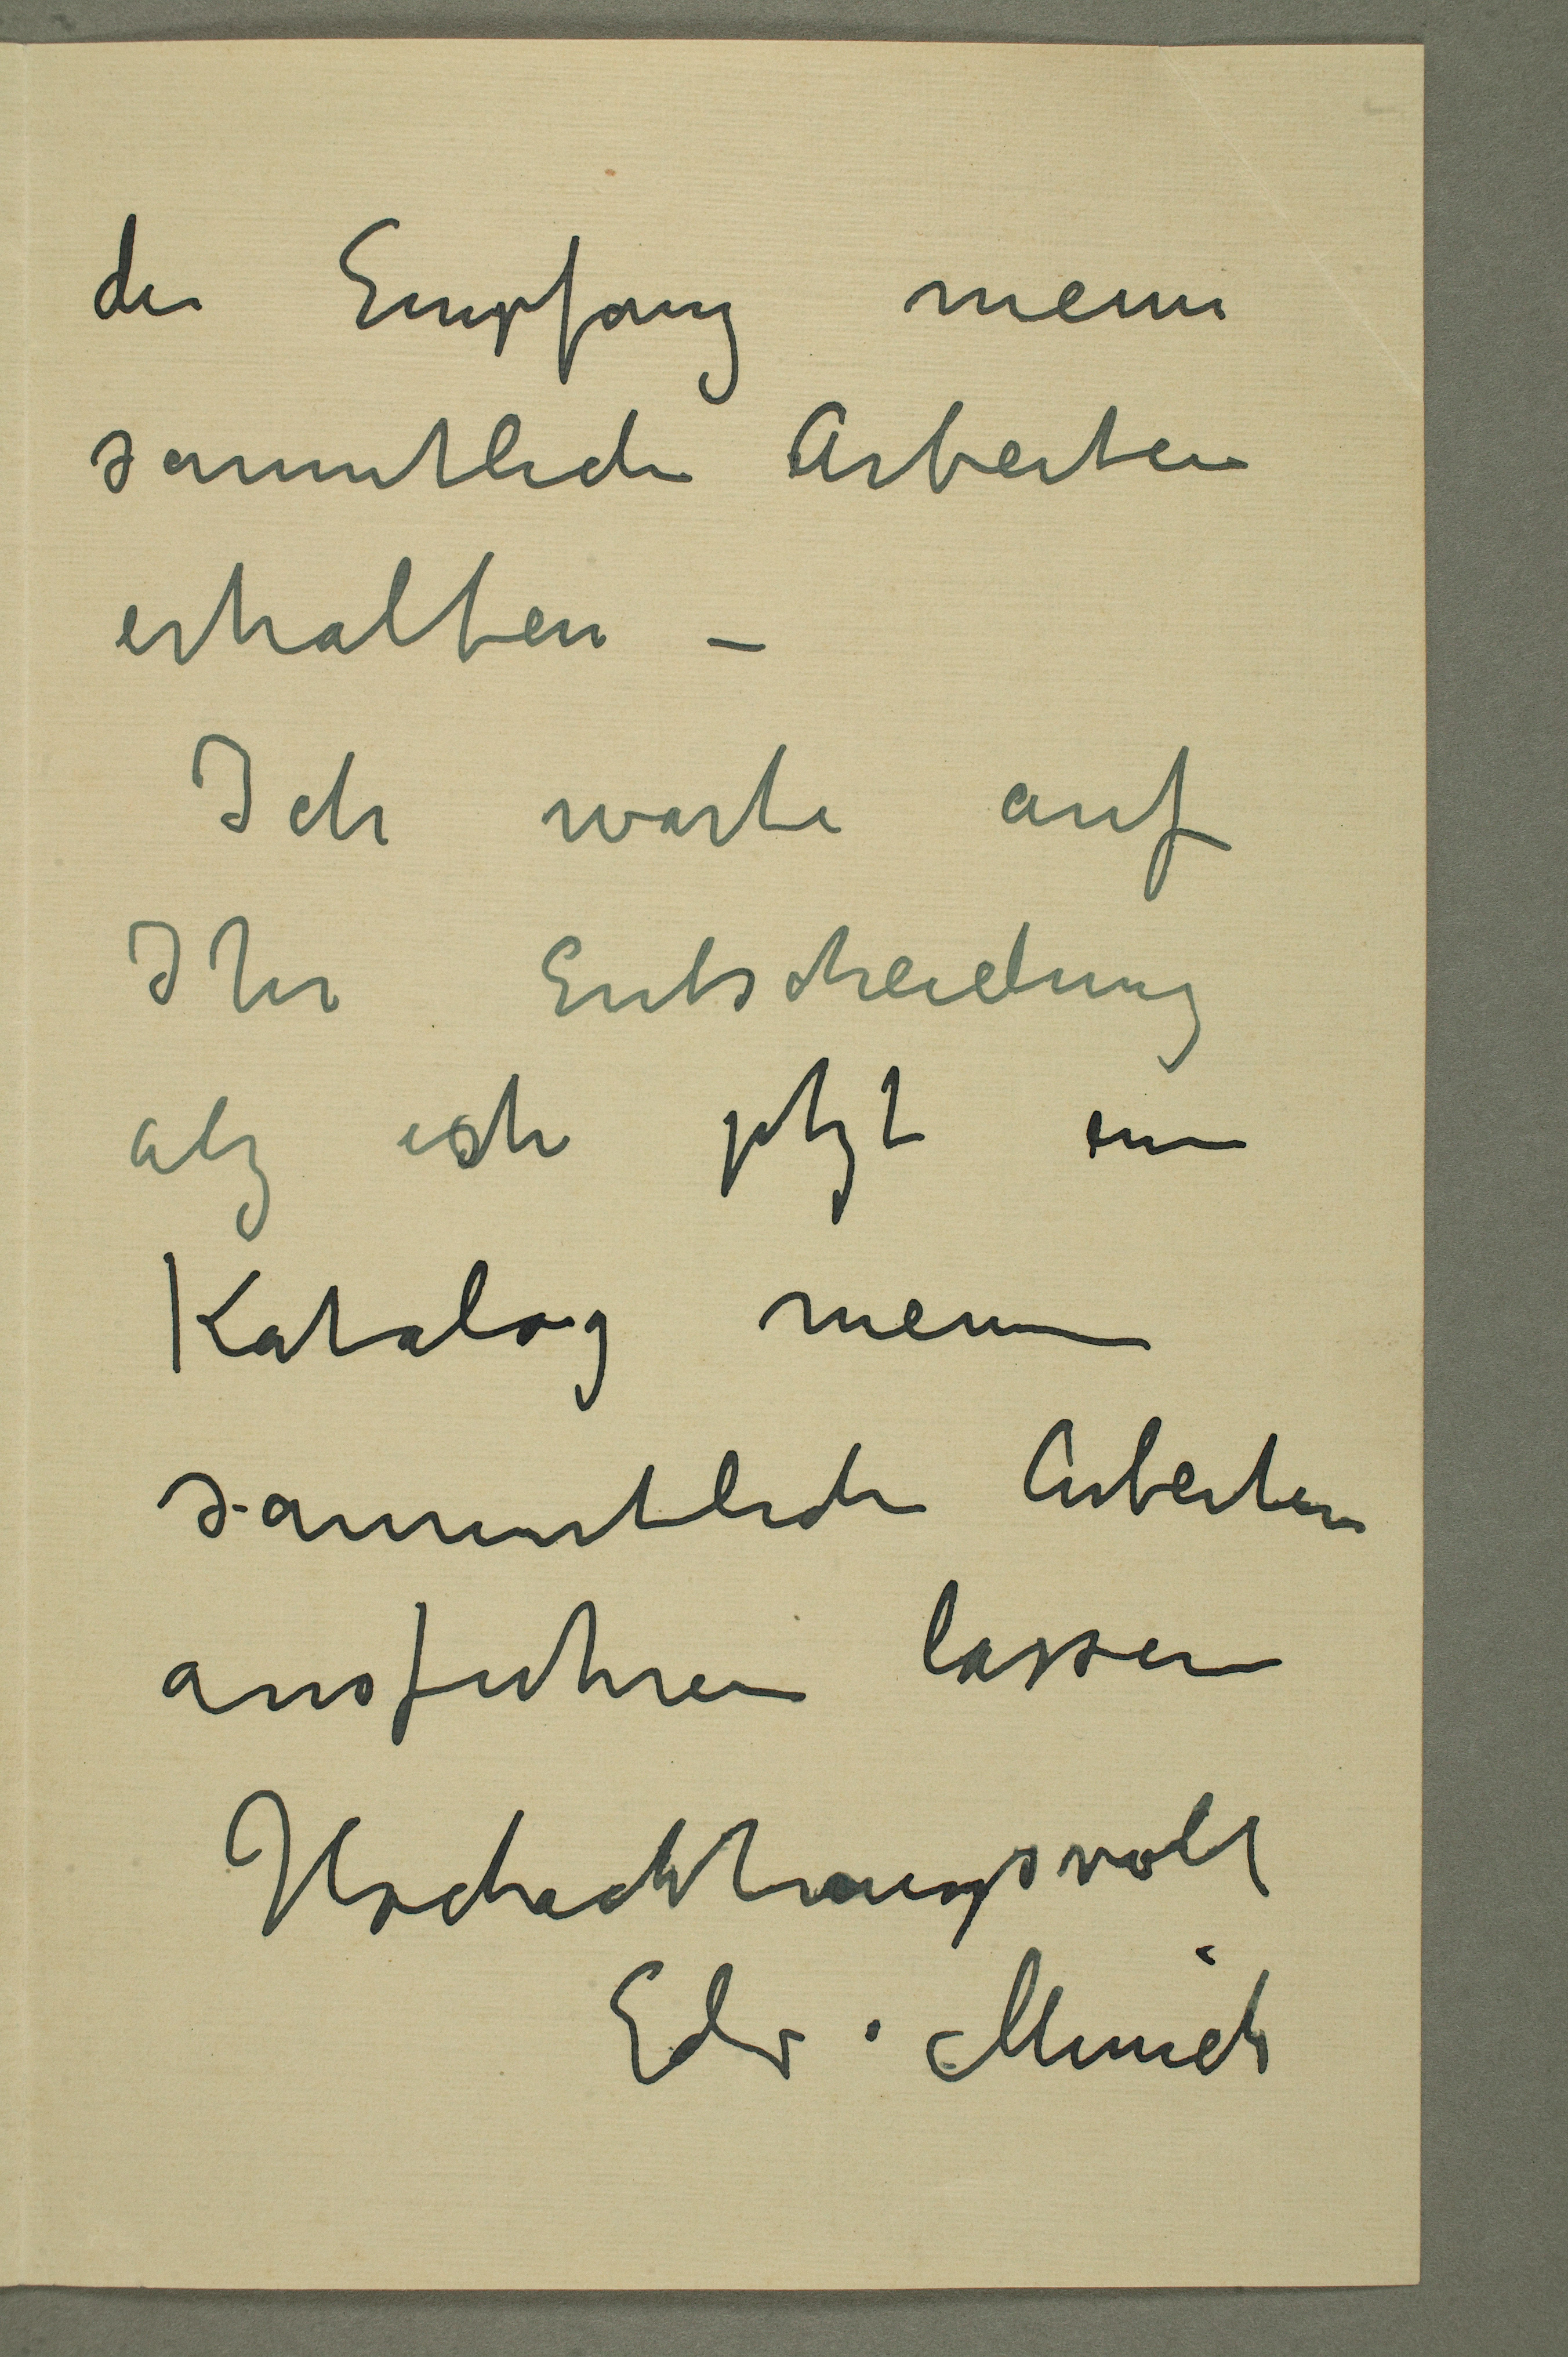 der Empfang meiner
sammtlicher Arbeiten
erhalten –
Ich warte auf
Ihre Entscheidung
alz ich jetzt ein
Katalog meine
sammtliche Arbeiten
ausfuhren lassen
Hochachtungsvoll
Edv. Munch